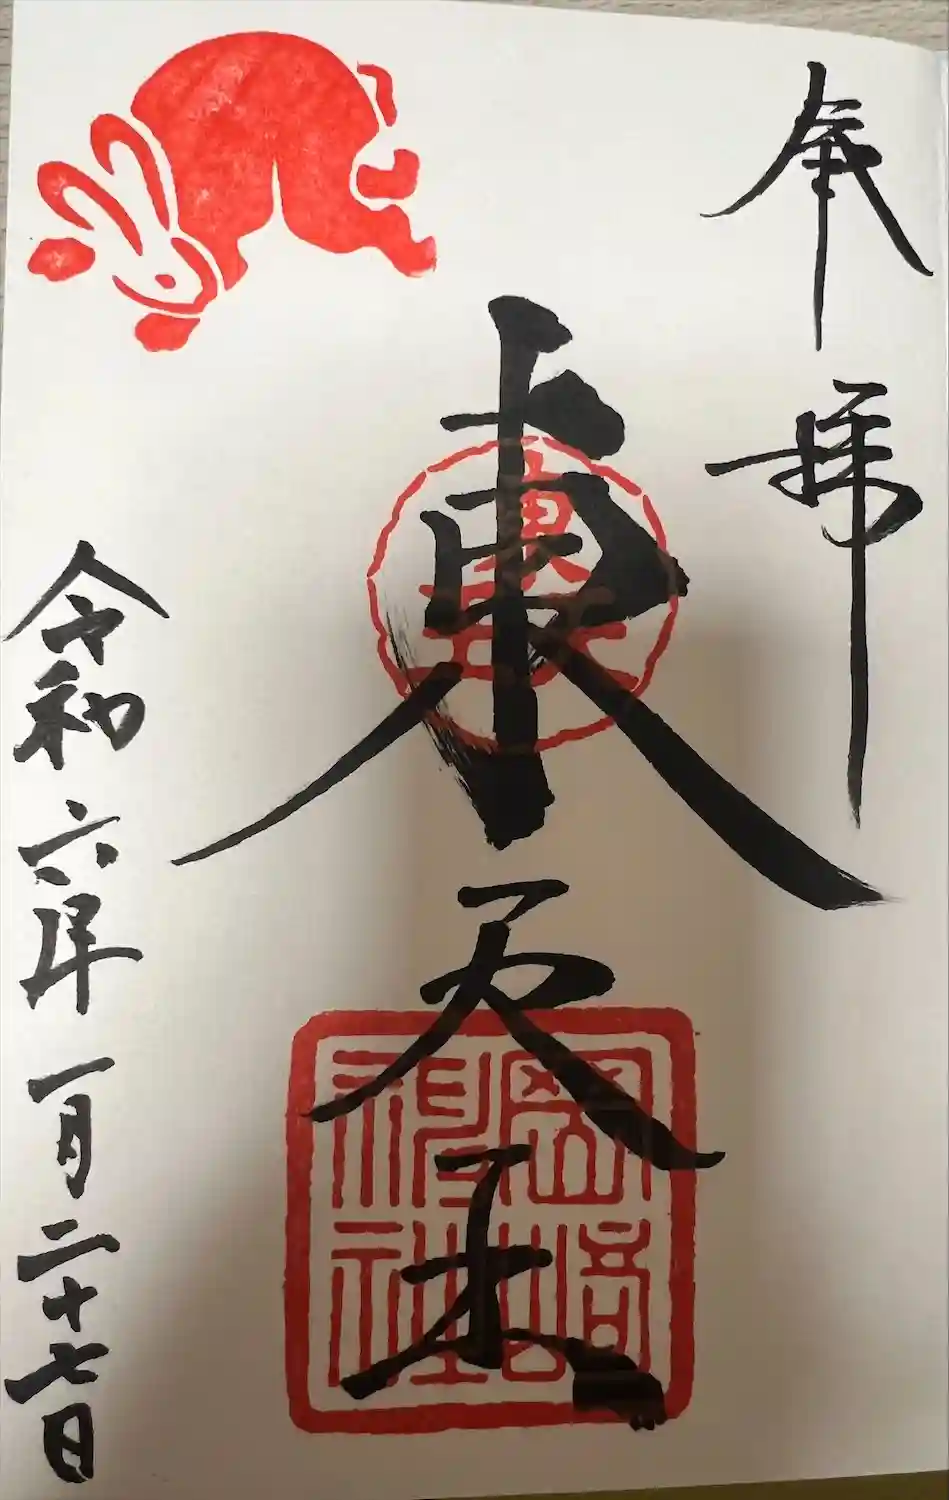 奉拝
東天王
岡﨑神社
令和六年一月二十七日